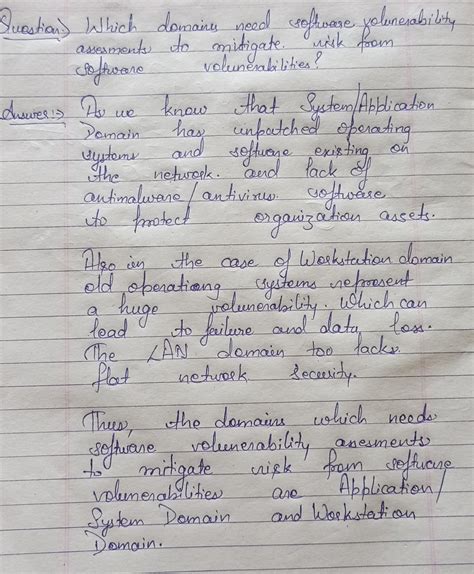 Question:> Which domains need software volunerability
assesments to mitigate risk from
software volunerabilities?
Answer:-> As we know that System/Application
Domain has unpatched operating
systems and software existing on
the network. and lack of
antimalware/antivirus software
to protect organization assets.
Also in the case of Workstation domain
old operationg systems represent
a huge volunerability. Which can
lead to failure and data loss.
The LAN domain too lacks
flat network security.
Thus, the domains which needs
software volunerability assesments
to mitigate risk from software
volunerabilities are Application/
System Domain and Workstation
Domain.